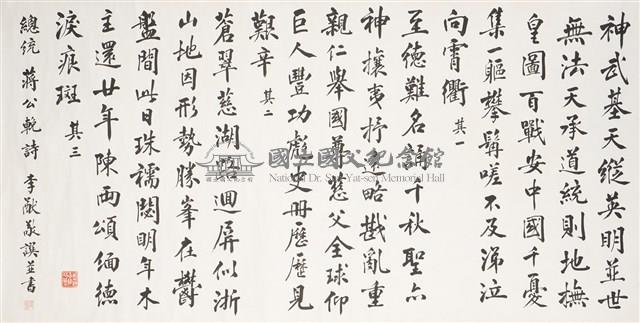 神武基天縱英明並世
無法天承道統則地撫
皇圖百戰安中國千憂
集一軀攀髯嗟不及涕泣
向霄衢 其一
至德難名誦千秋聖亦
神攘夷抒遠略戡亂重
親仁舉國尊慈父全球仰
巨人豐功虧史冊歷歷見
艱辛 其二
蒼翠慈湖路迴屏似浙
山地因形勢勝峯在鬱
盤間此日珠襦閟明年木
主還廿年陳雨頌緬德
淚痕斑 其三
總統 蔣公輓詩 李猷敬譔並書
國立國父紀念館
National Dr. Sun Yat-sen Memorial Hall